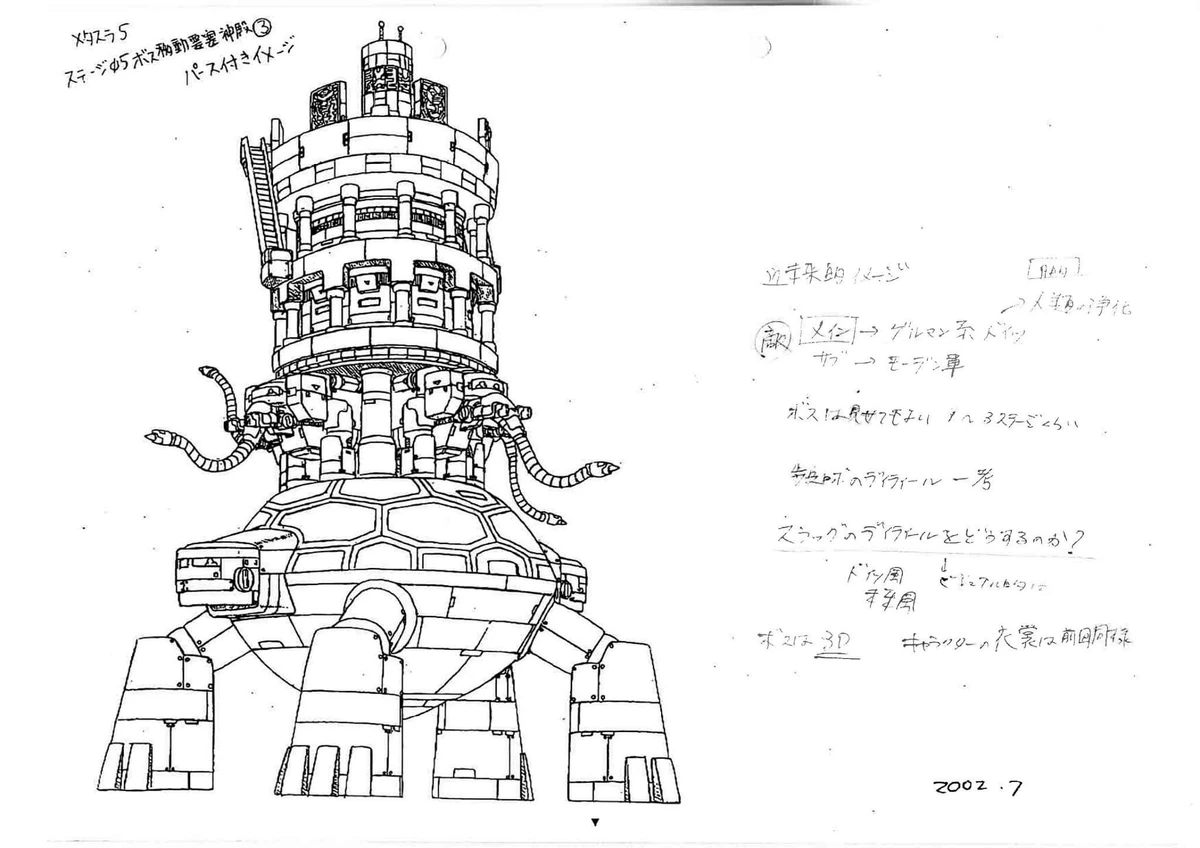 メタスラ5
ステージ05ボス移動要塞神殿③
パース付きイメージ
近未来的イメージ
人類の浄化
敵 メイン→ゲルマン系ドイツ
サブ→モーデン軍
ボスは見せてもよい 1〜3ステージくらい
のディティール一考
スラッグのディティールをどうするのか?
ドイツ風 ↓ビジュアル的に
ボスは3D キャラクターの衣裳は前回同様
2002.7